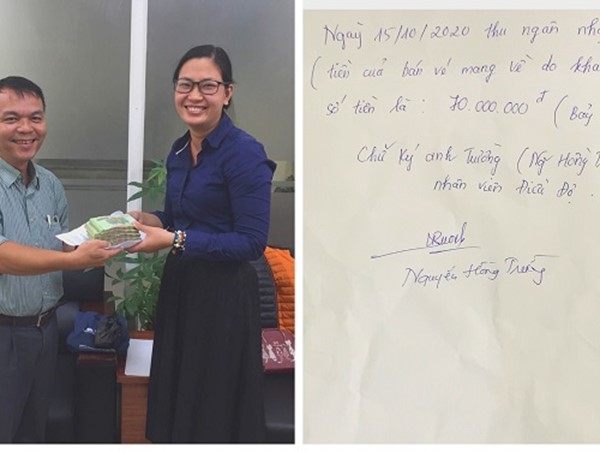 Ngày 15/10/2020 thu ngân nhậ
( tiền của bán vé mang về do khá
số tiền là : 70.000.000đ ( Bảy
Chữ Ký anh Trường ( Ng Hồng T
nhân viên Điều Độ .
Nguyễn Hồng Trường